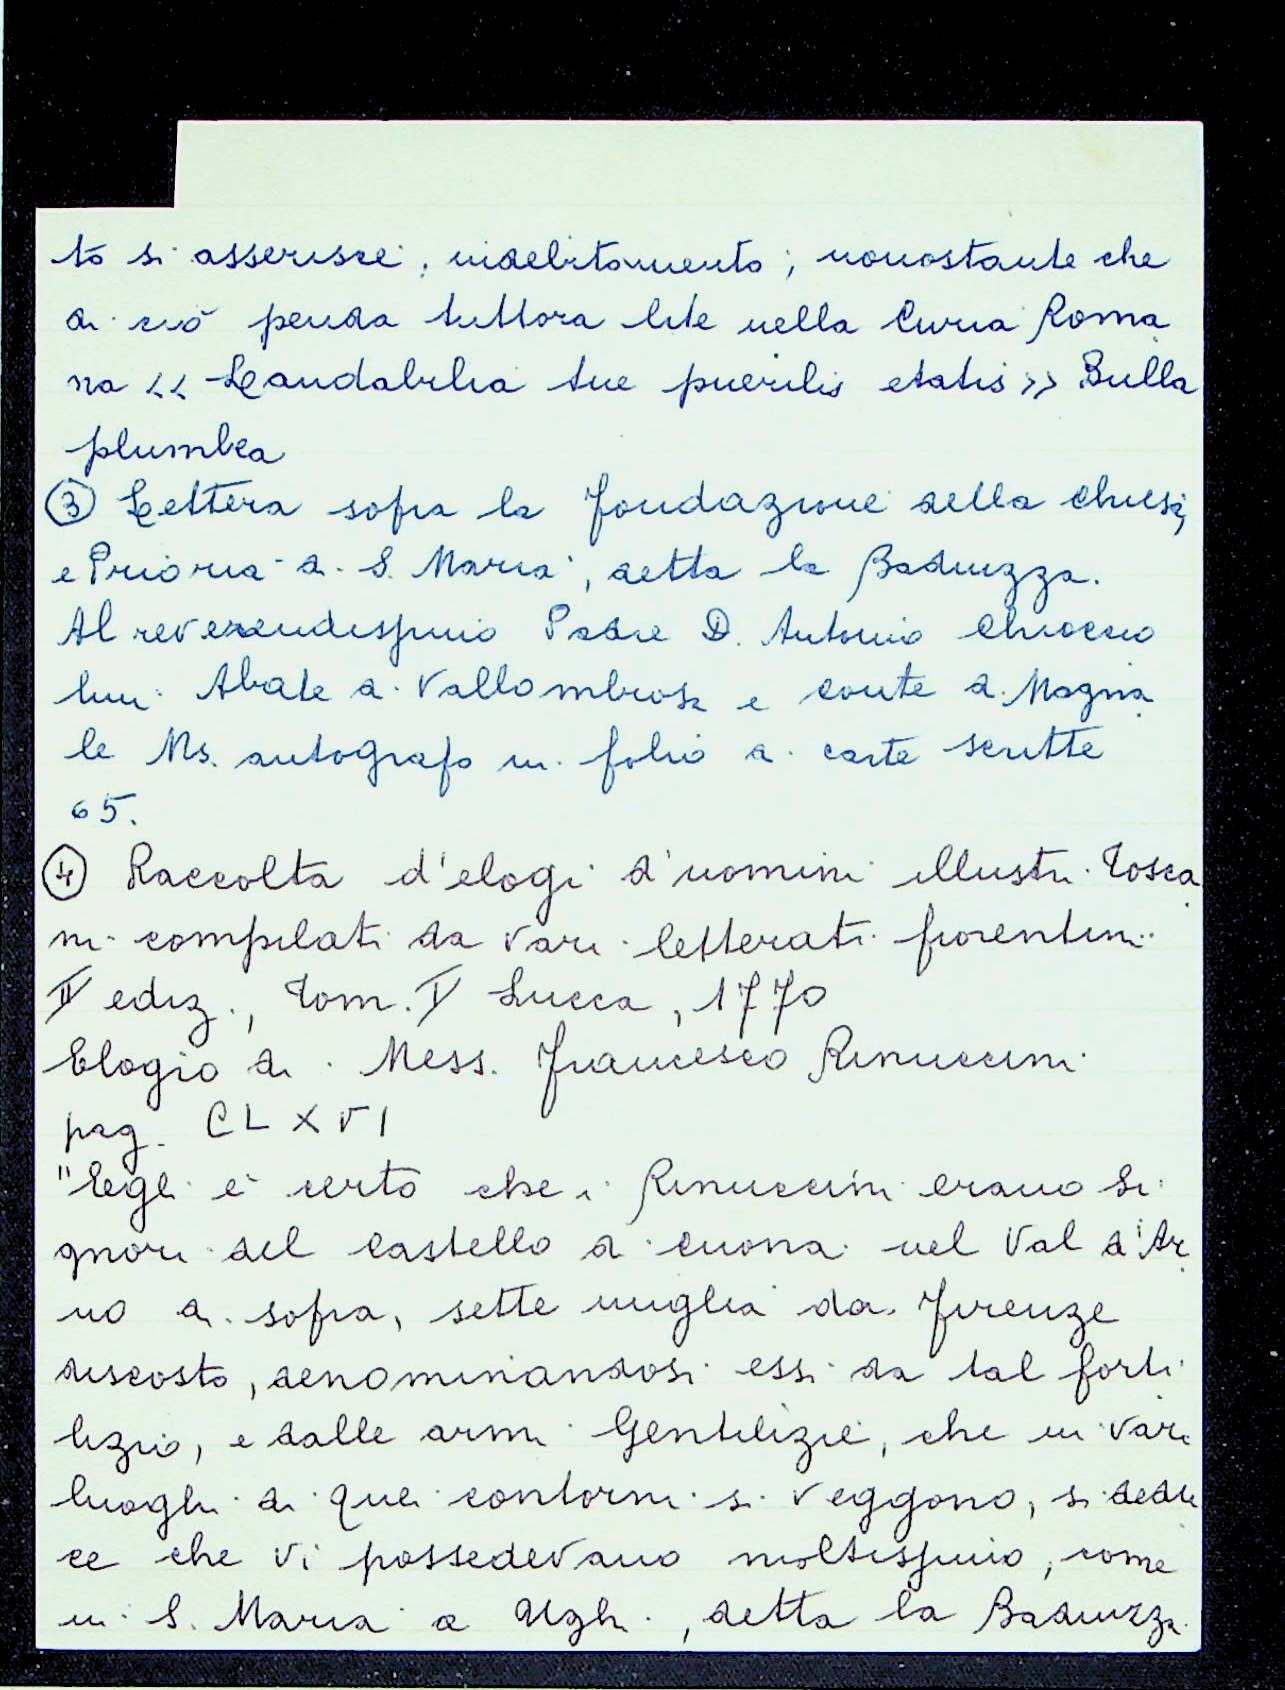 to si asserisce, indebitamento, nonostante che
di ciò penda tuttora lite nella Curia Roma
na << Laudabilia tue puerilis etatis >> Bulla
plumbea
③ Lettera sopra la fondazione della Chiesa,
e Prioria di S. Maria, detta la Badiuzza.
Al reverendissimo Padre D. Antonio
Abate di Vallombrosa e conte di Magna
le Ms. autografo in folio di carte scritte
65.
④ Raccolta d'elogi d'uomini illustri Tosca
ni compilati da vari letterati fiorentini
II ediz., Tom. I Lucca, 1770
Elogio di Mess. Francesco Rinuccini
pag. CLXVI
"Egli è certo che i Rinuccini erano Si
gnori del Castello di Cuona nel Val d'Ar
no di sopra, sette miglia da Firenze
discosto, denominandosi essi da tal forti
lizio, e dalle armi Gentilizie, che in vari
luoghi di quei contorni si veggono, si dedu
ce che vi possedevano moltissimo, come
in S. Maria a Ughi, detta la Badiuzza